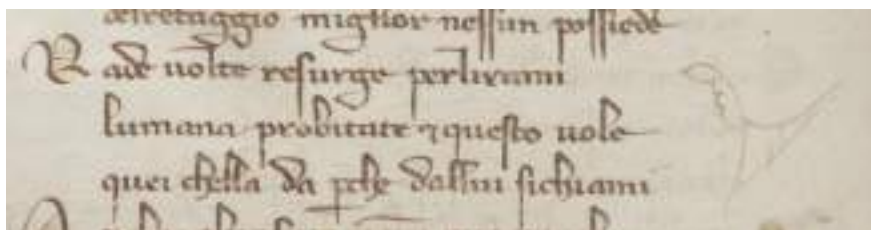 del retaggio miglior nessun possiede
Rade uolte resurge perlirami
lumana probitate ⁊ questo uole
quei chella da pche dallui sichiami